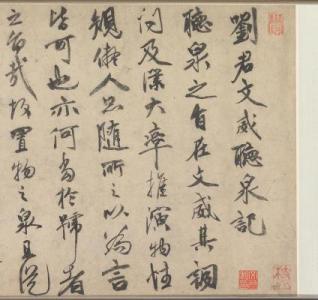 劉君文威聽泉記
聽泉之自在文威其詞
問及深大率推演物性
規儆人也隨所之以為言
皆可也亦何當於歸者
之前哉故置物之泉且從